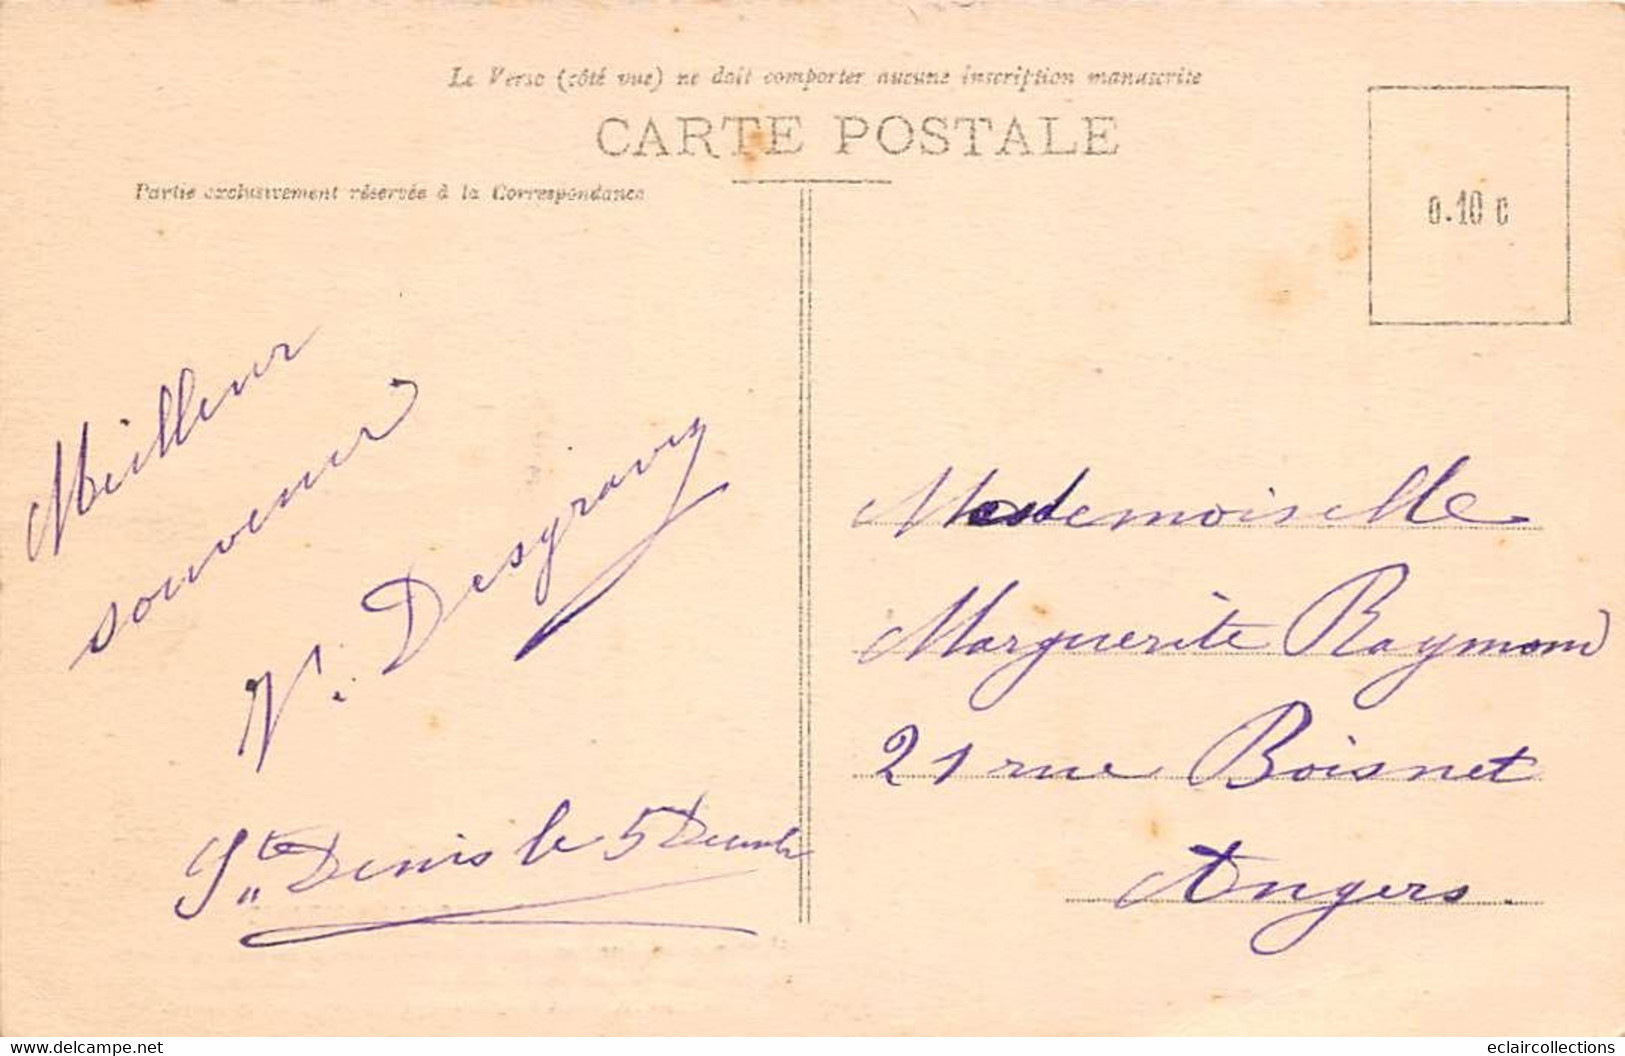 Le Verso (côté vue) ne doit comporter aucune inscription manuscrite
CARTE POSTALE
Partie exclusivement réservée à la Correspondance
0.10 c
Meilleur
souvenir
V. Desgravy
St Denis le 5 Decemb
Mademoiselle
Marguerite Raymond
21 rue Boisnet
Angers.
www.delcampe.net
eclaircollections